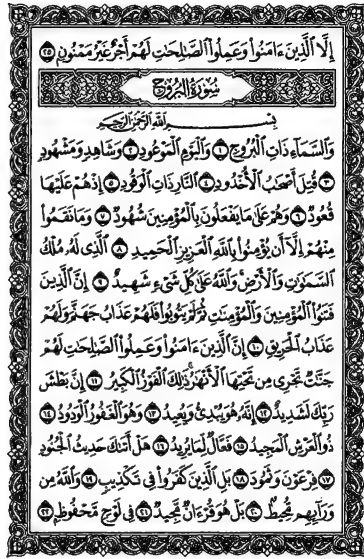 إِلَّا ٱلَّذِينَ ءَامَنُوا۟ وَعَمِلُوا۟ ٱلصَّٰلِحَٰتِ لَهُمْ أَجْرٌ غَيْرُ مَمْنُونٍۭ ٢٥
سُورَةُ الْبُرُوجِ
بِسْمِ ٱللَّهِ ٱلرَّحْمَٰنِ ٱلرَّحِيمِ
وَٱلسَّمَآءِ ذَاتِ ٱلْبُرُوجِ ١ وَٱلْيَوْمِ ٱلْمَوْعُودِ ٢ وَشَاهِدٍ وَمَشْهُودٍ
٣ قُتِلَ أَصْحَٰبُ ٱلْأُخْدُودِ ٤ ٱلنَّارِ ذَاتِ ٱلْوَقُودِ ٥ إِذْ هُمْ عَلَيْهَا
قُعُودٌ ٦ وَهُمْ عَلَىٰ مَا يَفْعَلُونَ بِٱلْمُؤْمِنِينَ شُهُودٌ ٧ وَمَا نَقَمُوا۟
مِنْهُمْ إِلَّآ أَن يُؤْمِنُوا۟ بِٱللَّهِ ٱلْعَزِيزِ ٱلْحَمِيدِ ٨ ٱلَّذِى لَهُۥ مُلْكُ
ٱلسَّمَٰوَٰتِ وَٱلْأَرْضِ وَٱللَّهُ عَلَىٰ كُلِّ شَىْءٍ شَهِيدٌ ٩ إِنَّ ٱلَّذِينَ
فَتَنُوا۟ ٱلْمُؤْمِنِينَ وَٱلْمُؤْمِنَٰتِ ثُمَّ لَمْ يَتُوبُوا۟ فَلَهُمْ عَذَابُ جَهَنَّمَ وَلَهُمْ
عَذَابُ ٱلْحَرِيقِ ١٠ إِنَّ ٱلَّذِينَ ءَامَنُوا۟ وَعَمِلُوا۟ ٱلصَّٰلِحَٰتِ لَهُمْ
جَنَّٰتٌ تَجْرِى مِن تَحْتِهَا ٱلْأَنْهَٰرُ ۚ ذَٰلِكَ ٱلْفَوْزُ ٱلْكَبِيرُ ١١ إِنَّ بَطْشَ
رَبِّكَ لَشَدِيدٌ ١٢ إِنَّهُۥ هُوَ يُبْدِئُ وَيُعِيدُ ١٣ وَهُوَ ٱلْغَفُورُ ٱلْوَدُودُ ١٤
ذُو ٱلْعَرْشِ ٱلْمَجِيدُ ١٥ فَعَّالٌ لِّمَا يُرِيدُ ١٦ هَلْ أَتَىٰكَ حَدِيثُ ٱلْجُنُودِ
١٧ فِرْعَوْنَ وَثَمُودَ ١٨ بَلِ ٱلَّذِينَ كَفَرُوا۟ فِى تَكْذِيبٍ ١٩ وَٱللَّهُ مِن
وَرَآئِهِم مُّحِيطٌۢ ٢٠ بَلْ هُوَ قُرْءَانٌ مَّجِيدٌ ٢١ فِى لَوْحٍ مَّحْفُوظٍۭ ٢٢